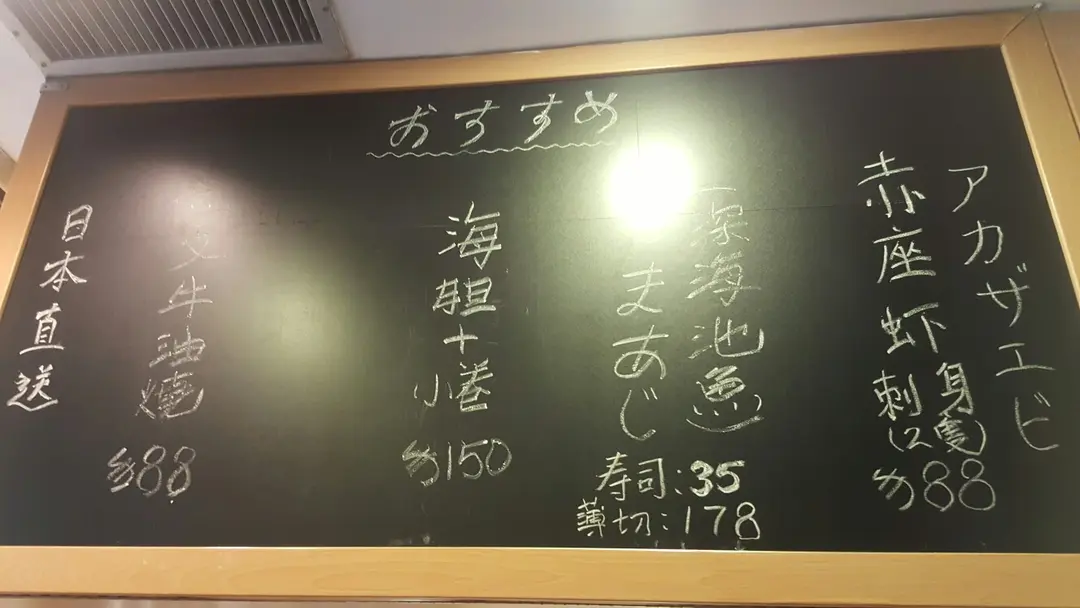 おすすめ
アカザエビ
赤座虾刺身
(2隻)
$88
(深海池魚)
まあじ
寿司:35
薄切:178
海胆+小巻
$150
牛油燒
$88
日本直送